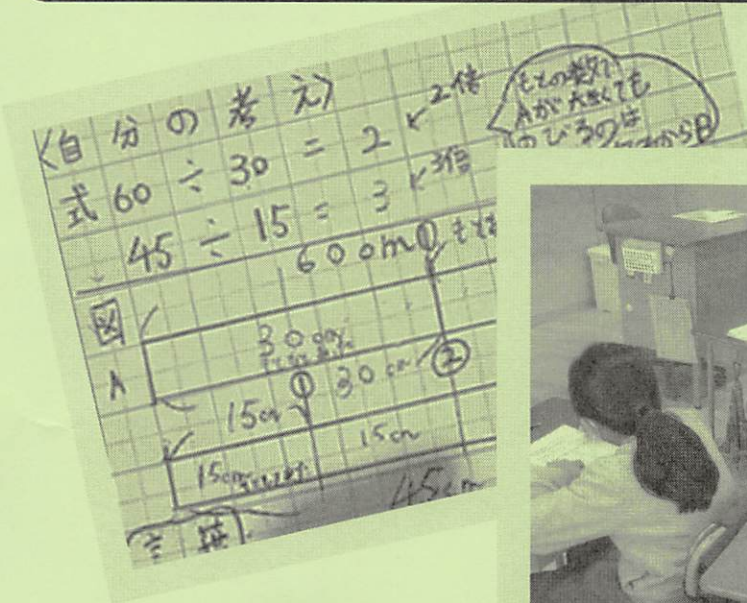 〈自分の考え〉
式 60 ÷ 30 = 2 ← 2倍
45 ÷ 15 = 3 ← 3倍
もとの数で
Aが大きくても
のびるのは
から B
60cm ①
図
A
30cm
① 30cm ②
15cm
15cm
15cm
45cm
言葉